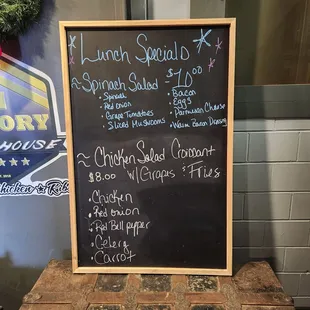 Lunch Specials
~ Spinach Salad $10.00
• Spinach
• Red onion
• Grape Tomatoes
• Sliced Mushrooms
• Bacon
• Eggs
• Parmesan Cheese
• Warm Bacon Dressing
~ Chicken Salad Croissant
$8.00 w/Grapes & Fries
• Chicken
• Red onion
• Red Bell pepper
• Celery
• Carrot
ORY
HOUSE
Chicken & Ribs